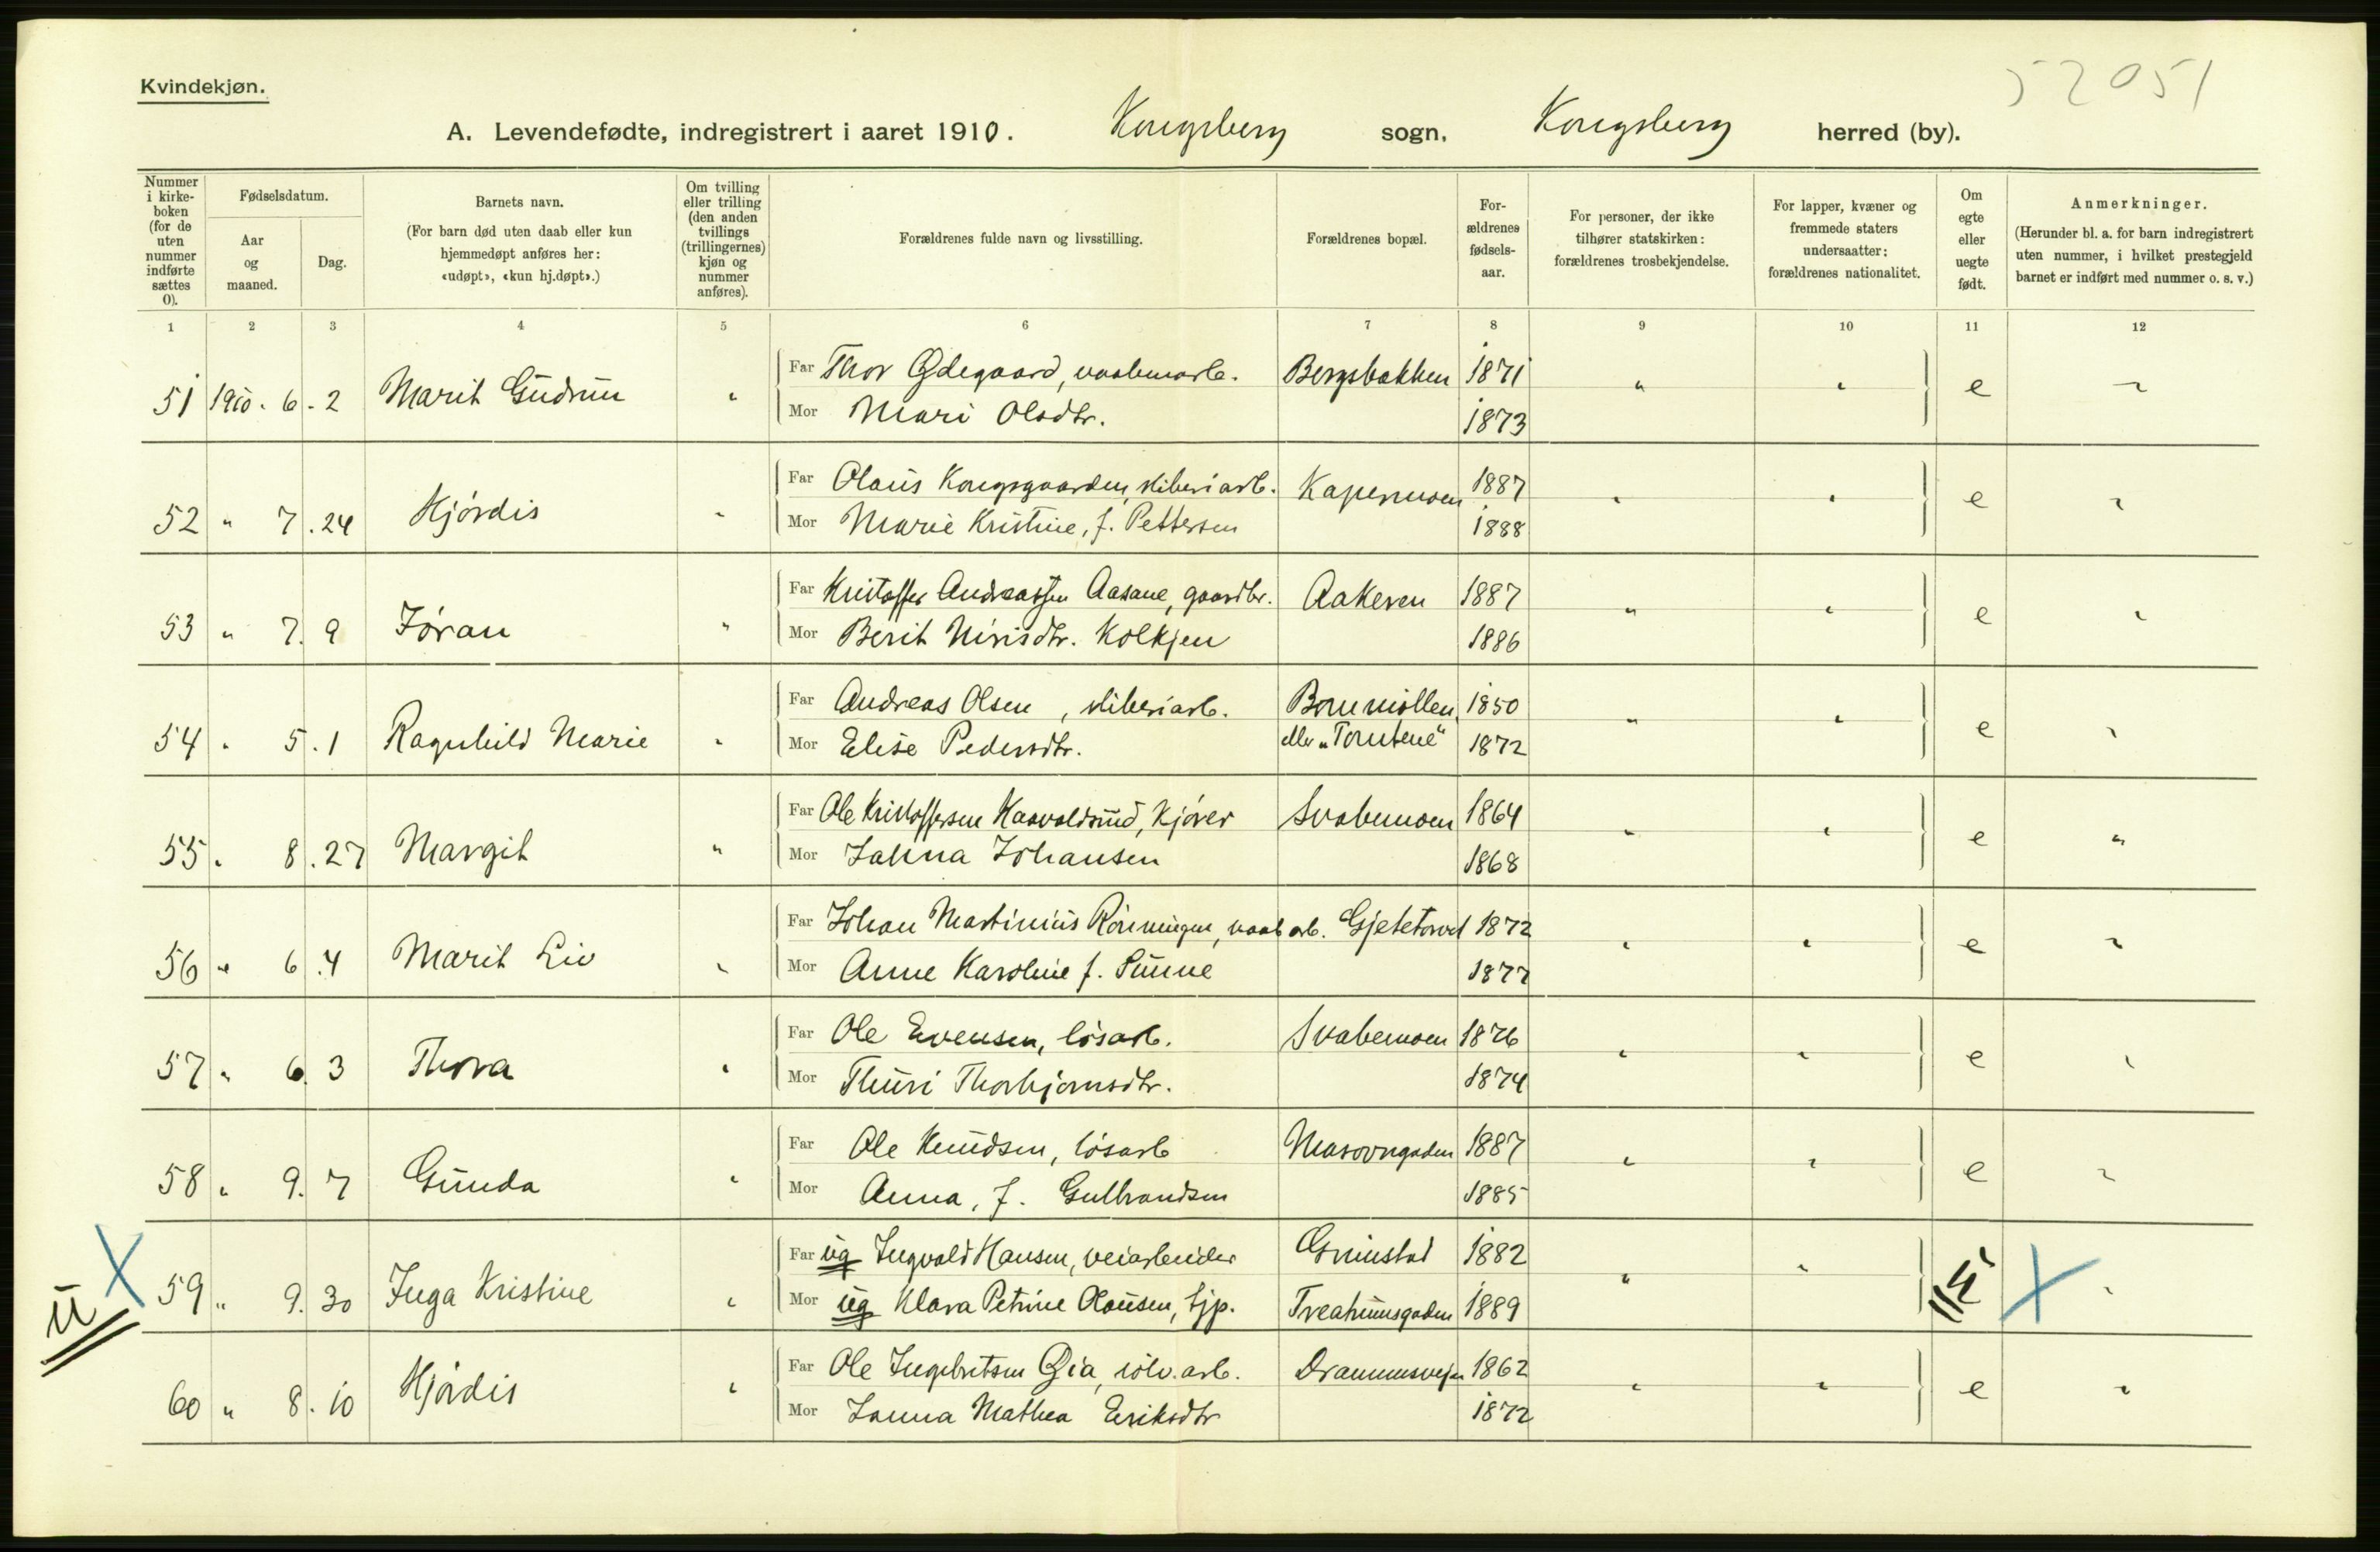 Kvindekjøn.
52051
A. Levendefødte, indregistrert i aaret 1910. Kongsberg sogn, Kongsberg herred (by).
Nummer i kirkeboken (for de uten nummer indførte sættes 0).
Fødselsdatum.
Aar og maaned.
Dag.
Barnets navn.
(For barn død uten daab eller kun hjemmedøpt anføres her: «udøpt», «kun hj.døpt».)
Om tvilling eller trilling (den anden tvillings (trillingernes) kjøn og nummer anføres).
Forældrenes fulde navn og livsstilling.
Forældrenes bopæl.
Forældrenes fødselsaar.
For personer, der ikke tilhører statskirken: forældrenes trosbekjendelse.
For lapper, kvæner og fremmede staters undersaatter: forældrenes nationalitet.
Om egte eller uegte født.
Anmerkninger.
(Herunder bl. a. for barn indregistrert uten nummer, i hvilket prestegjeld barnet er indført med nummer o. s. v.)
1 2 3 4 5 6 7 8 9 10 11 12
51 1910. 6. 2 Marit Gudrun " Far Thor Ødegaard, vaabenarb. Bergsbakken 1871 " " e "
Mor Mari Olsdtr. 1873
52 " 7. 24 Hjørdis " Far Olaus Kongsgaarden, sliberiarb. Kapermoen 1887 " " e "
Mor Marie Kristine, f. Pettersen 1888
53 " 7. 9 Jøran " Far Kristoffer Andreassen Aasane, gaardbr. Aakeren 1887 " " e "
Mor Berit Nirisdtr. Kolkjen 1886
54 " 5. 1 Ragnhild Marie " Far Andreas Olsen, sliberiarb. 1850 " " e "
Mor Elise Pedersdtr. eller "Tomtene" 1872
55 " 8. 27 Margit " Far Ole Kristoffersen Haavoldsrud, kjører Svabemoen 1864 " " e "
Mor Jahna Johansen 1868
56 " 6. 4 Marit Liv " Far Johan Martinius Rønningen, vaab arb. Gjetetorvet 1872 " " e "
Mor Anne Karoline f. Sunne 1877
57 " 6. 3 Thora " Far Ole Evensen, løsarb. Svabemoen 1876 " " e "
Mor Thuri Thorbjørnsdtr. 1874
58 " 9. 7 Gunda " Far Ole Knudsen, løsarb Masovngaden 1887 " " e "
Mor Anna, f. Gulbrandsen 1885
u X 59 " 9. 30 Inga Kristine " Far ug Ingvald Hansen, veiarbeider Grimstad 1882 " " u X "
Mor ug Klara Petrine Olausen, tjp. Treahusgaden 1889
60 " 8. 10 Hjørdis " Far Ole Ingebritsen Øia, sølv. arb. Drammensvejen 1862 " " e "
Mor Janna Mathea Eriksdtr 1872